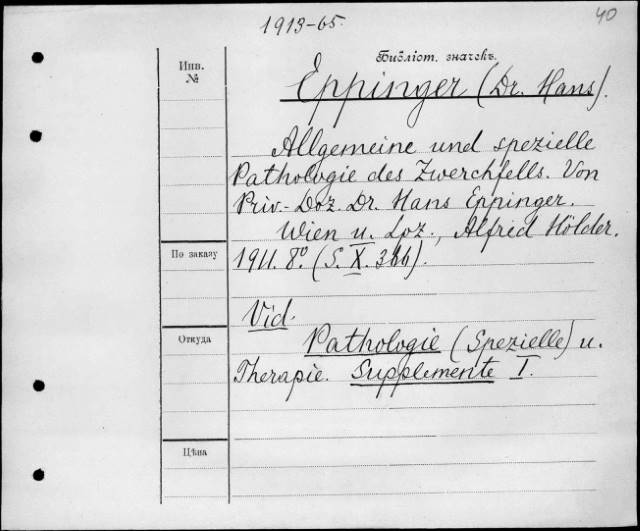 1913-65.
40
Библіот. значекъ.
Инв.
№
Eppinger (Dr. Hans).
Allgemeine und spezielle
Pathologie des Zwerchfells. Von
Priv.-Doz. Dr. Hans Eppinger.
Wien u. Lpz., Alfred Hölder.
По заказу
1911. 8º. (S. X. 366).
Vid.
Откуда
Pathologie (Spezielle) u.
Therapie. Supplemente I.
Цѣна